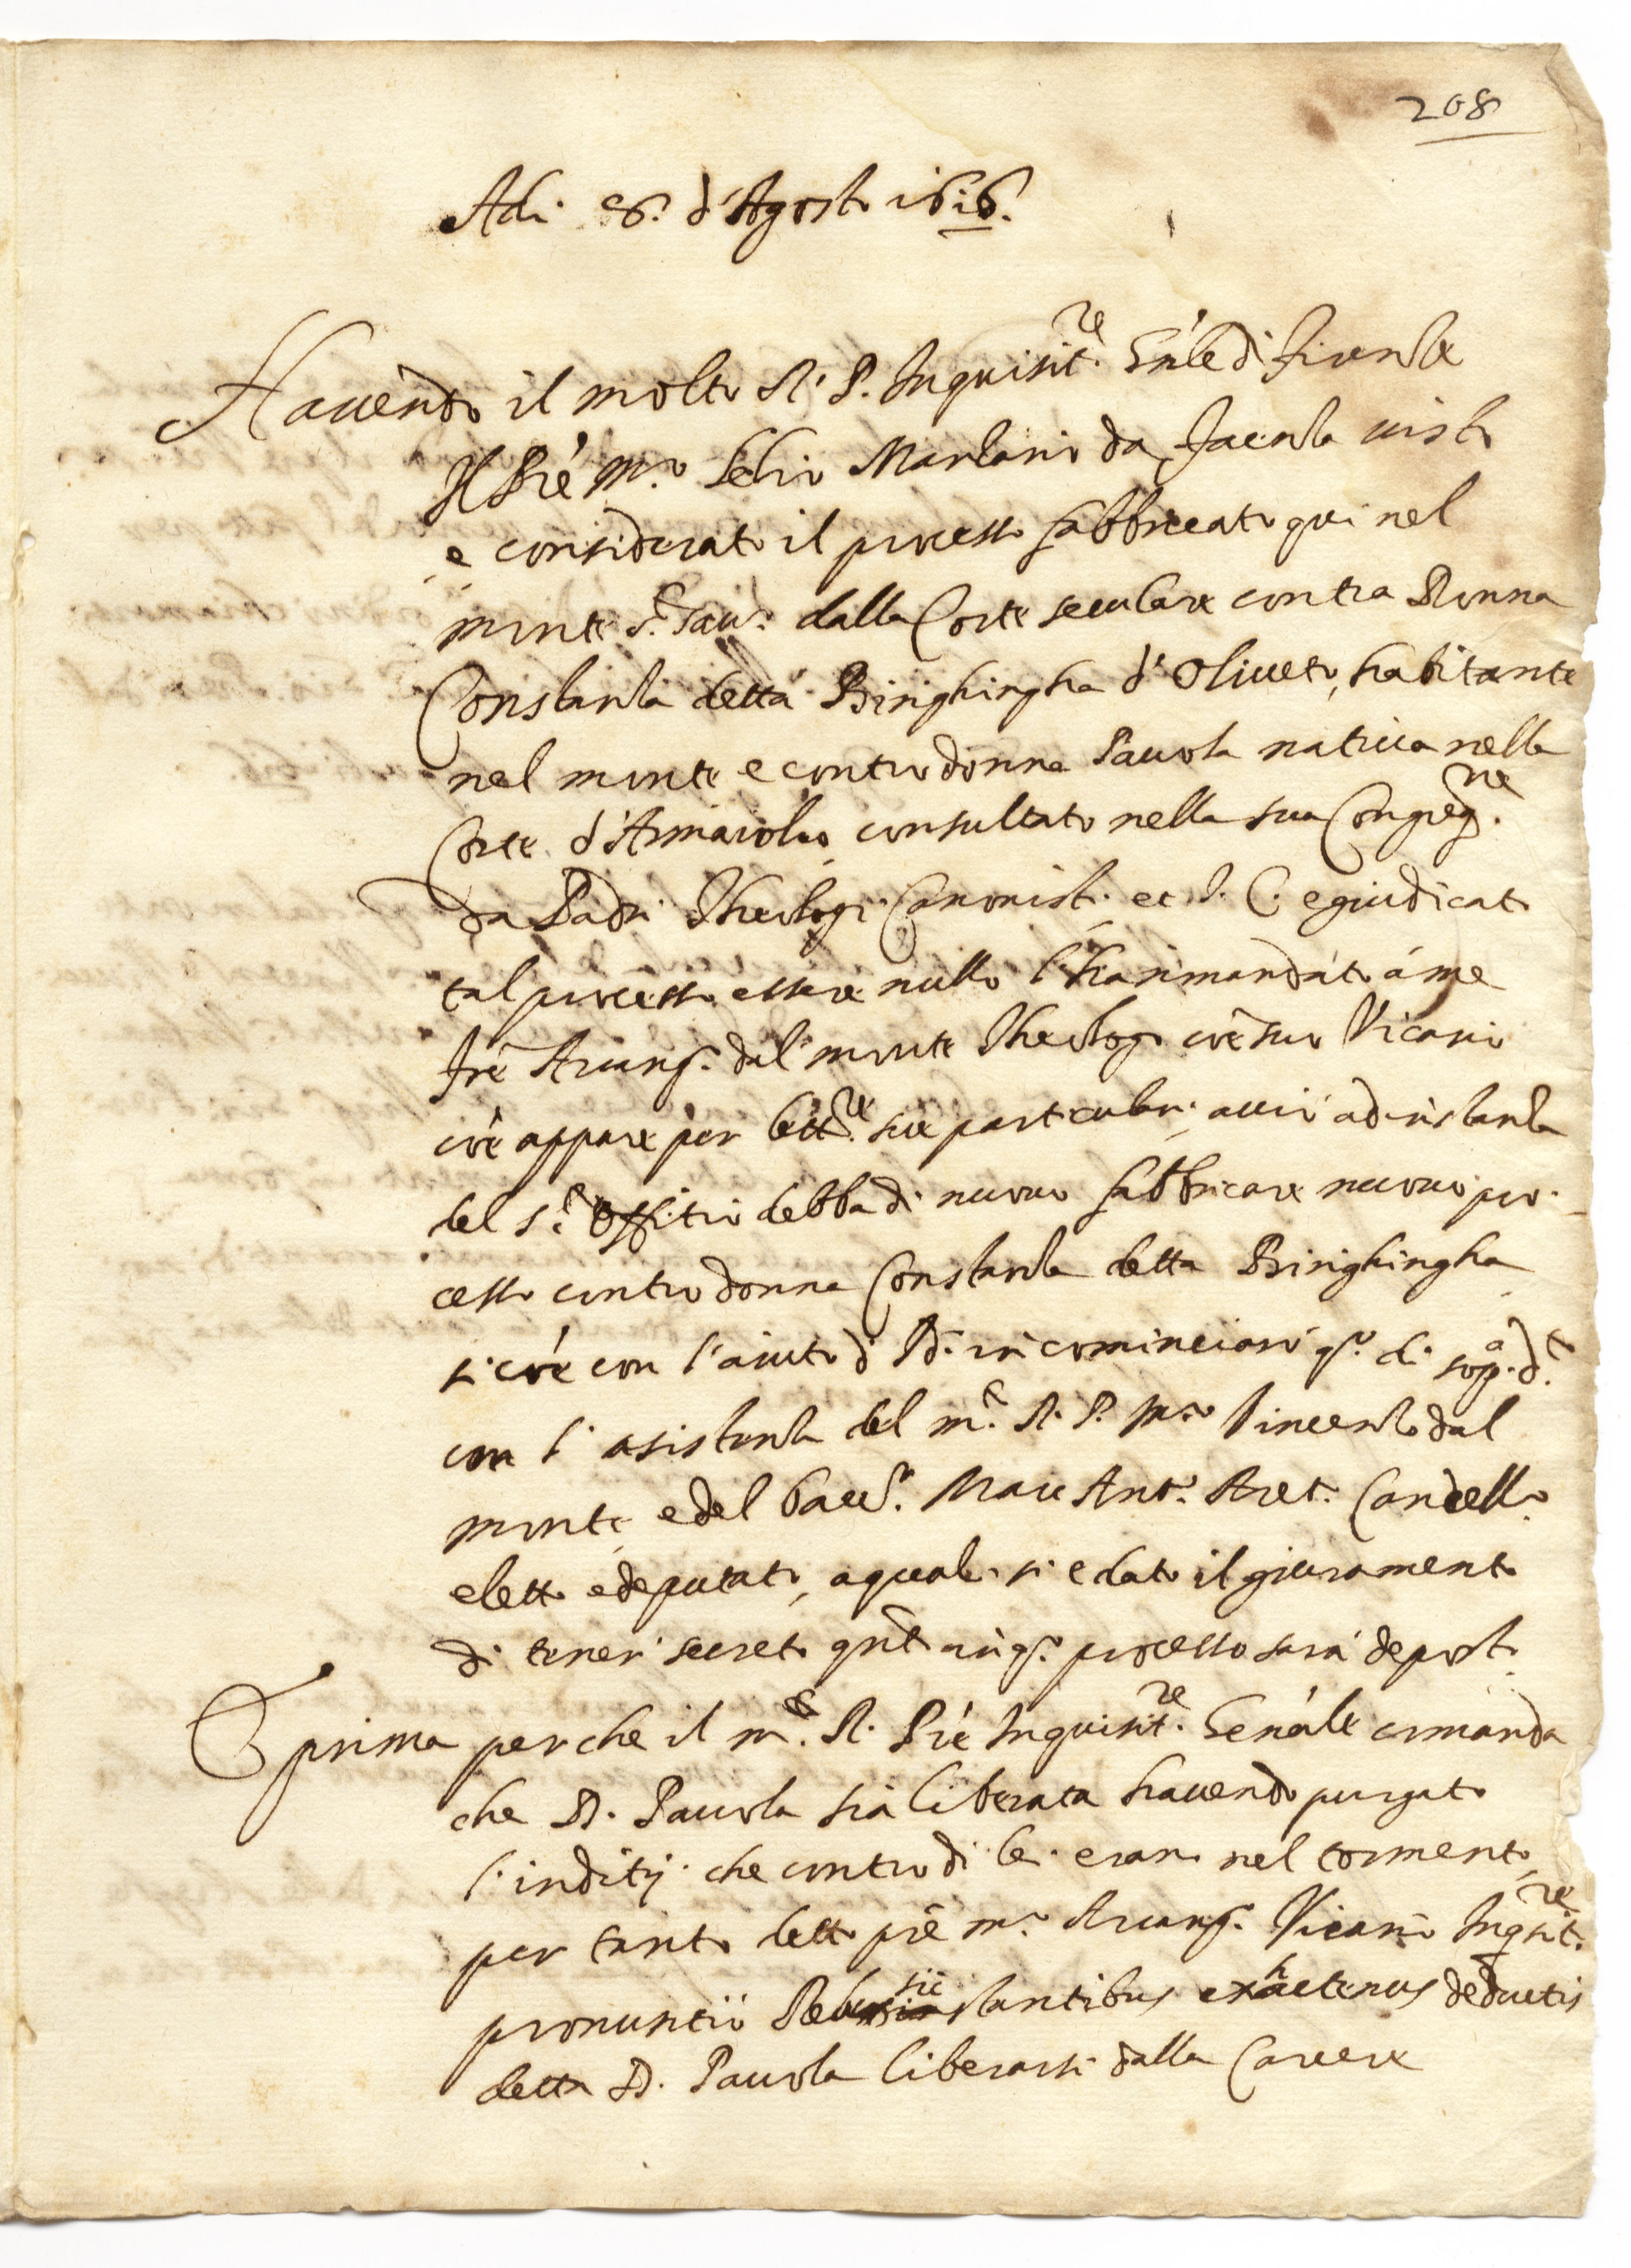 208
Adi 8. d'Agosto 1616.
Havendo il molto R. P. Inquisit.re Gn̄le di Firenze
Il Prē M.ro Lelio Marzario da Faenza visto
e considerato il processo fabbricato qui nel
monte S.to Sav.o dalla Corte seculare contra Donna
Constanza detta Biringhingha d'Oliveto, habitante
nel monte e contro donna Pauola nativa nella
Corte d'Armaiolo consultato nella sua Congreg.ne
da Padri Theologi Canonisti et J. C. e giudicato
tal processo essere nullo l'ha rimandato à me
Frē Arcang.o dal monte Theologo cōe suo Vicario
cōe appare per lett.re sue particulari acciò ad instanza
del S.to Offitio debba di nuovo fabbricare nuovo pro-
cesso contro donna Constanza detta Biringhingha
si cōe con l'aiuto d'Id.o incominciarò q.o dì sop.a d.to
con l'asistenza del m.to R. P. M.ro Vincenzo dal
monte, e del Bacc.o Marc Ant.o Aret.o Cancell.o
eletto e deputato, a quali si è dato il giuramento
di tener secreto qn̄to in q.o processo sarà deposto.
E prima perche il m.to R. Prē Inquisit.re Genāle comanda
che D. Pauola sia liberata havendo purgato
l'inditij che contro di lei erano nel tormento,
per tanto detto prē m.ro Arcang.o Vicario Inqsit.re
pronuntiò Rebus sic stantibus ex hactenus deductis
detta D. Pauola liberarsi dalla Carcere